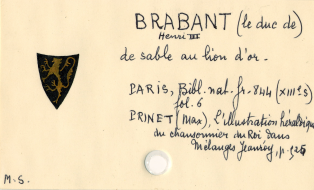 BRABANT (le duc de)
Henri III
de sable au lion d'or.
PARIS, Bibl. nat. fr. 844 (XIIIe s)
fol. 6
PRINET (Max), L'illustration héraldique
du chansonnier du Roi dans
Mélanges Jeanroy, p. 525
M.S.